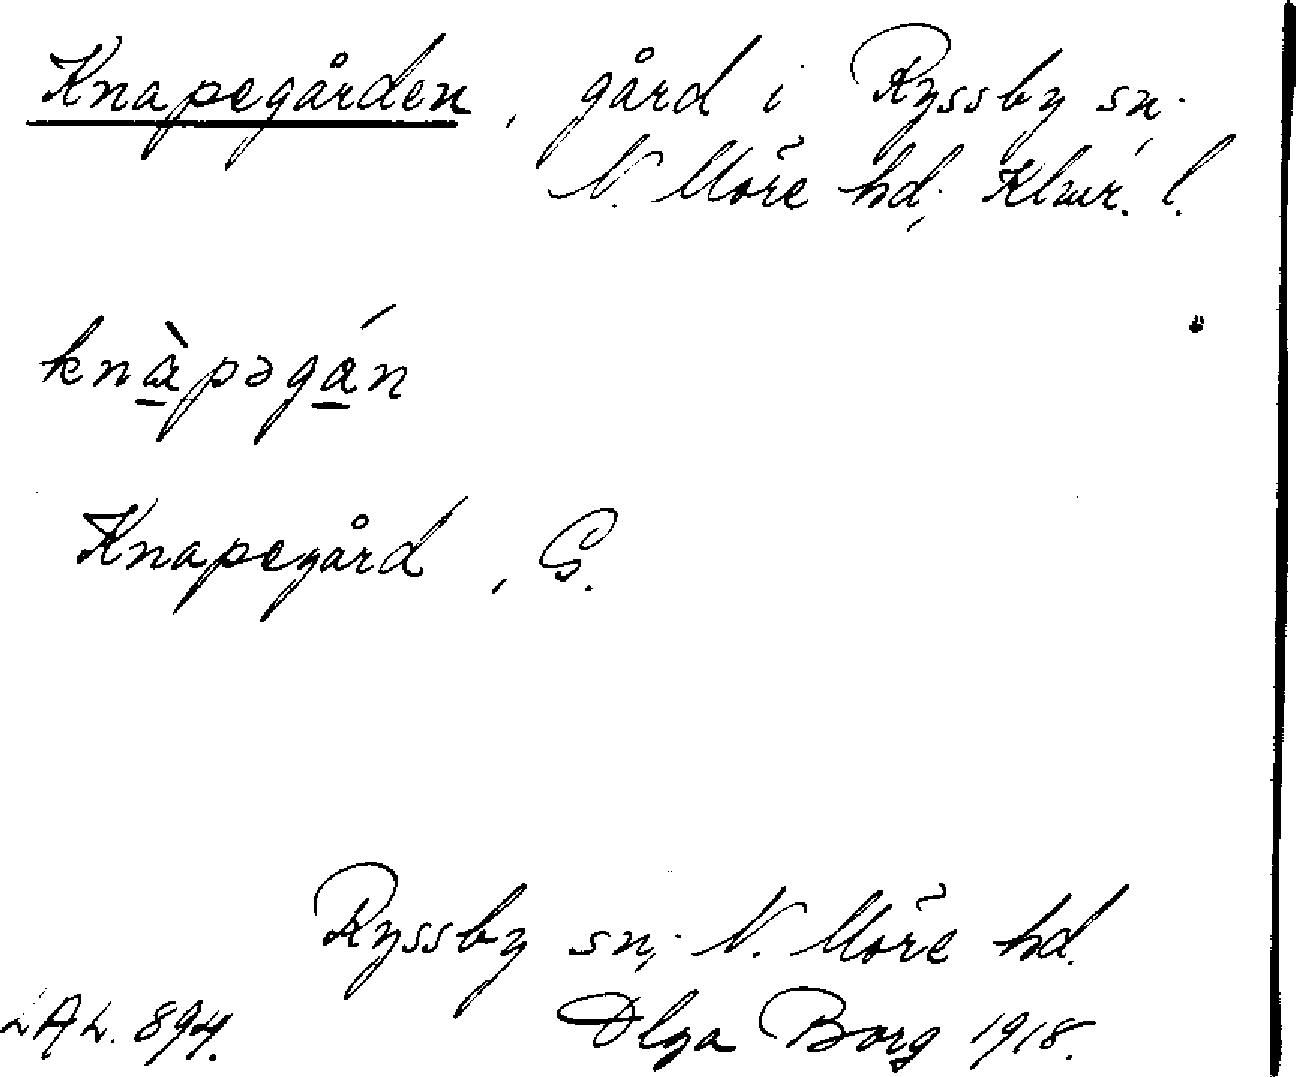 Knapegården, gård i Ryssby sn.,
N. Möre hd., Klmr. l.
knàpəgán
Knapegård, G.
Ryssby sn., N. Möre hd.
LAL. 894. Olga Borg 1918.